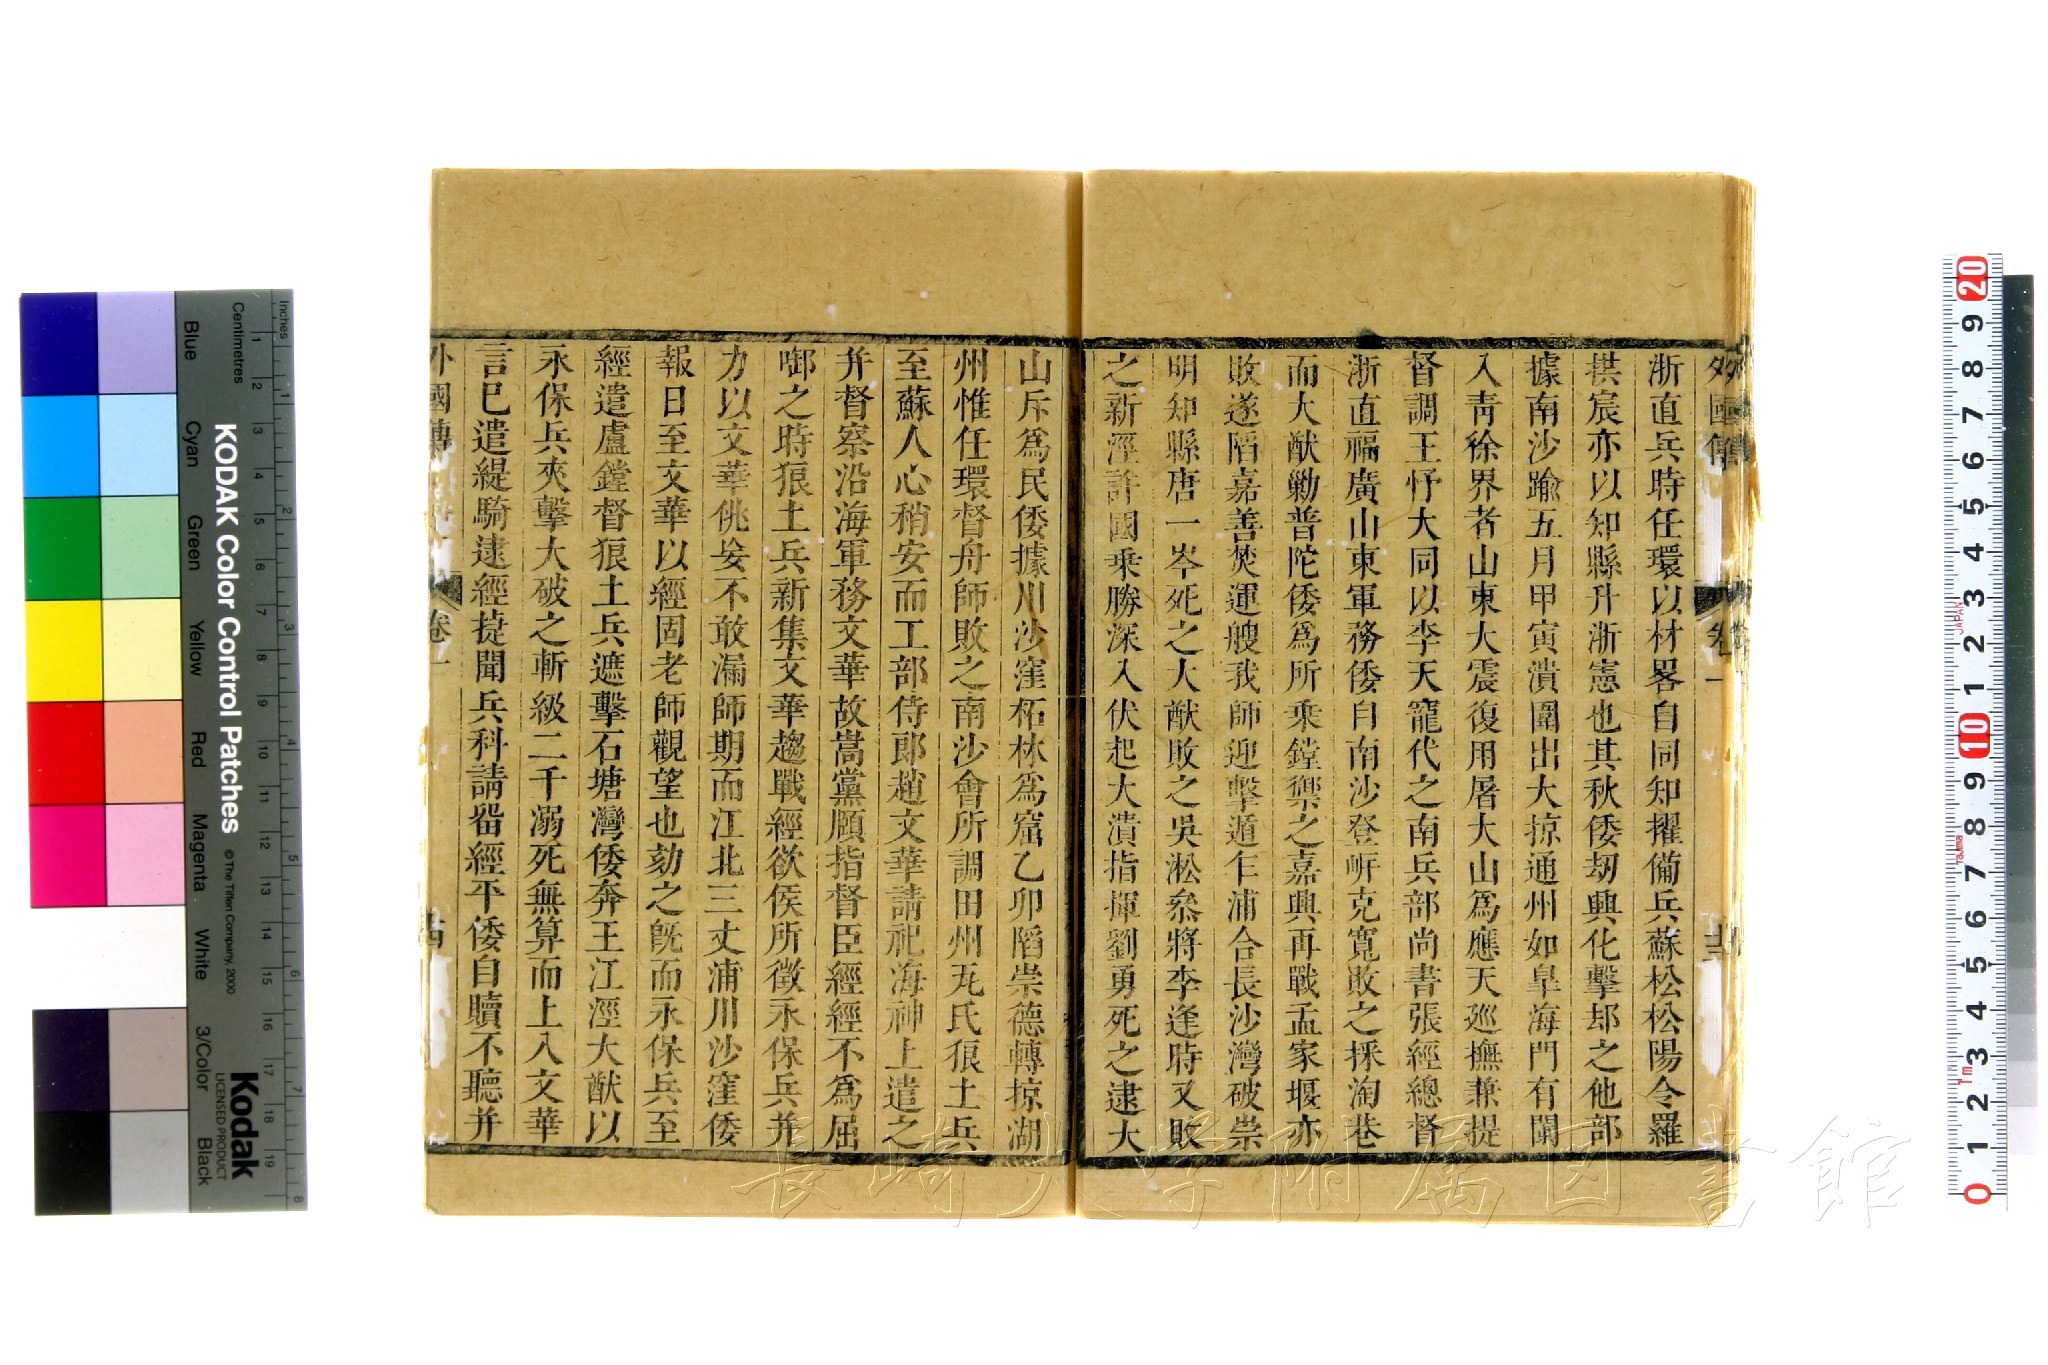 浙直兵時任環以材畧自同知擢備兵蘇松松陽令羅
拱宸亦以知縣升浙憲也其秋倭刼興化擊却之他部
據南沙踰五月甲寅潰圍出大掠通州如臯海門有闌
入青徐界者山東大震復用屠大山爲應天廵撫兼提
督調王忬大同以李天寵代之南兵部尚書張經總督
浙直福廣山東軍務倭自南沙登岍克寬敗之採淘巷
而大猷勦普陀倭爲所乘鏜禦之嘉興再戰孟家堰亦
敗遂陷嘉善焚運艘我師迎擊遁乍浦合長沙灣破崇
明知縣唐一岑死之大猷敗之吳淞叅將李逢時又敗
之新涇許國乗勝深入伏起大潰指揮劉勇死之逮大
山斥爲民倭據川沙窪柘林爲窟乙卯陷崇德轉掠湖
州惟任環督舟師敗之南沙會所調田州瓦氏狼土兵
至蘇人心稍安而工部侍郎趙文華請祀海神上遣之
并督察沿海軍務文華故嵩黨頤指督臣經經不爲屈
啣之時狼土兵新集文華趨戰經欲俟所徵永保兵并
力以文華佻妄不敢漏師期而江北三丈浦川沙窪倭
報日至文華以經固老師觀望也劾之旣而永保兵至
經遣盧鏜督狼土兵遮擊石塘灣倭奔王江涇大猷以
永保兵夾擊大破之斬級二千溺死無算而上入文華
言巳遣緹騎逮經捷聞兵科請畱經平倭自贖不聽并
外國傳
卷一
外國傳
卷一
KODAK Color Control Patches
© The Tiffen Company, 2000
Kodak
LICENSED PRODUCT
Inches
Centimetres
Blue
Cyan
Green
Yellow
Red
Magenta
White
3/Color
Black
長崎大学附属図書館
JAPAN
Tajima